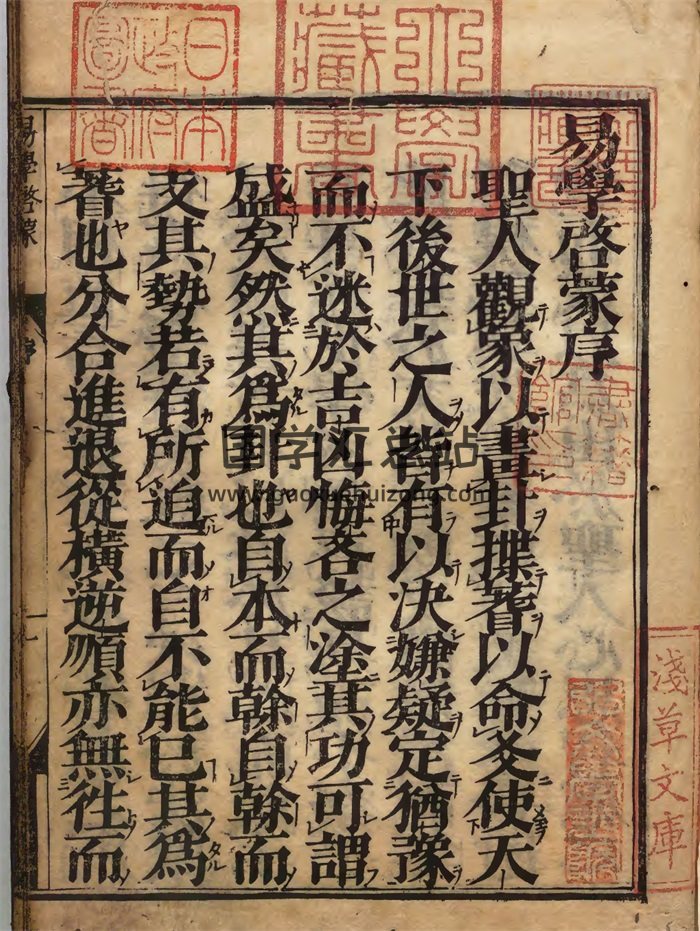 易學啓蒙序
聖人觀象以畫卦揲蓍以命爻使天
下後世之人皆有以決嫌疑定猶豫
而不迷於吉凶悔吝之塗其功可謂
盛矣然其爲卦也自本而幹自幹而
支其勢若有所迫而自不能已其爲
蓍也分合進退從橫逆順亦無往而
易學啓蒙
序
日本政府圖書
淺草文庫
www.gaoxunhuizong.com